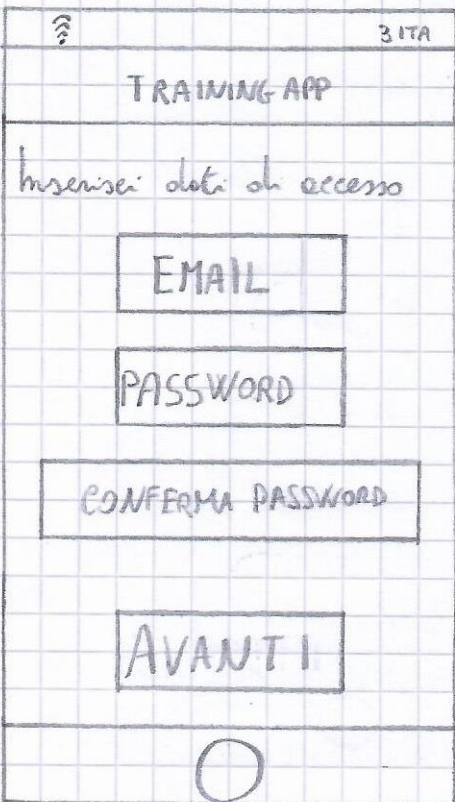 3 ITA
TRAINING APP
Inserisci dati di accesso
EMAIL
PASSWORD
CONFERMA PASSWORD
AVANTI